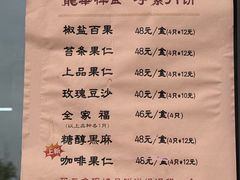 椒盐百果 48元/盒(4只*12元)
苔条果仁 48元/盒(4只*12元)
上品果仁 48元/盒(4只*12元)
玫瑰豆沙 40元/盒(4只*10元)
全家福 46元/盒(4只)
(以上品种各1只)
糖醇黑麻 48元/盒(4只*12元)
咖啡果仁 48元/盒(4只*12元)